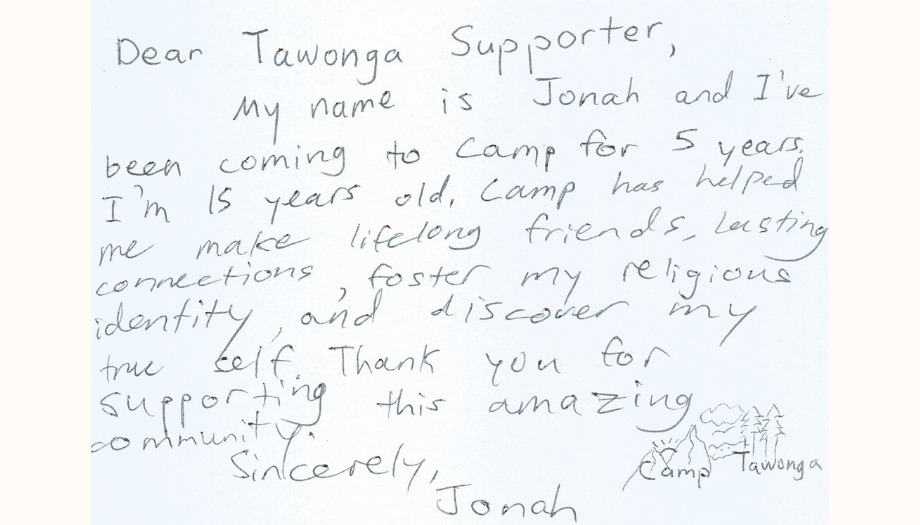 Dear Tawonga Supporter,
My name is Jonah and I've
been coming to Camp for 5 years.
I'm 15 years old. Camp has helped
me make lifelong friends, lasting
connections, foster my religious
identity, and discover my
true self. Thank you for
supporting this amazing
community.
Sincerely,
Jonah
Camp Tawonga